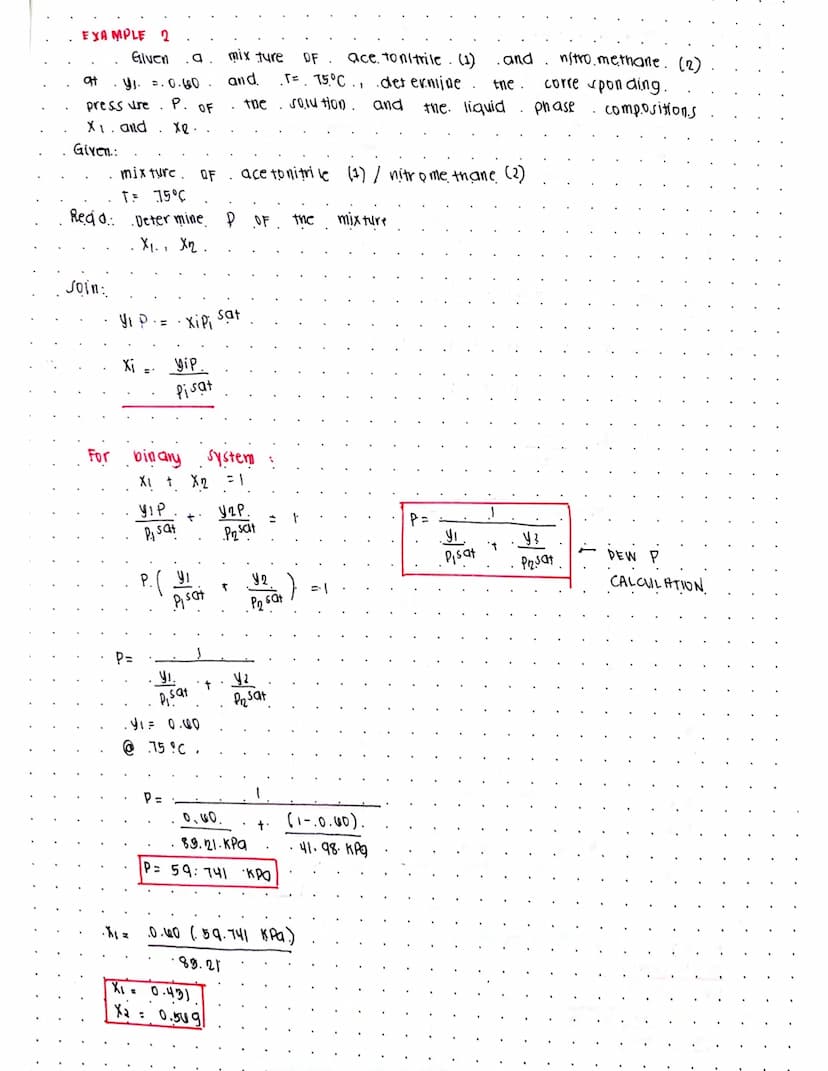 EXAMPLE 2
Given a mixture OF acetonitrile (1) and nitromethane (2)
at y₁ = 0.60 and T= 75°C, determine the corresponding
pressure P OF the solution and the liquid phase compositions
X₁ and X₂.
Given:
mixture OF acetonitrile (1) / nitromethane (2)
T= 75°C
Reqd: Determine P OF the mixture
X₁, X₂
Soln:
yᵢ P = xᵢPᵢ sat
Xᵢ = yᵢP / Pᵢ sat
For binary system:
X₁ + X₂ = 1
y₁P / P₁ sat + y₂P / P₂ sat = 1
P = 1 / (y₁ / P₁ sat + y₂ / P₂ sat) ← DEW P
CALCULATION
P ( y₁ / P₁ sat + y₂ / P₂ sat ) = 1
P = 1 / (y₁ / P₁ sat + y₂ / P₂ sat)
y₁ = 0.60
@ 75°C,
P = 1 / (0.60 / 83.21 KPa + (1-0.60) / 41.98 KPa)
P = 59.741 KPa
X₁ = 0.60 (59.741 KPa) / 83.21
X₁ = 0.431
X₂ = 0.569